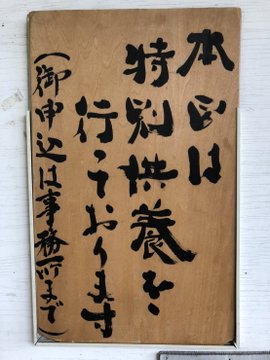 本日は
特別供養を
行っております
(御申込は事務所まで)